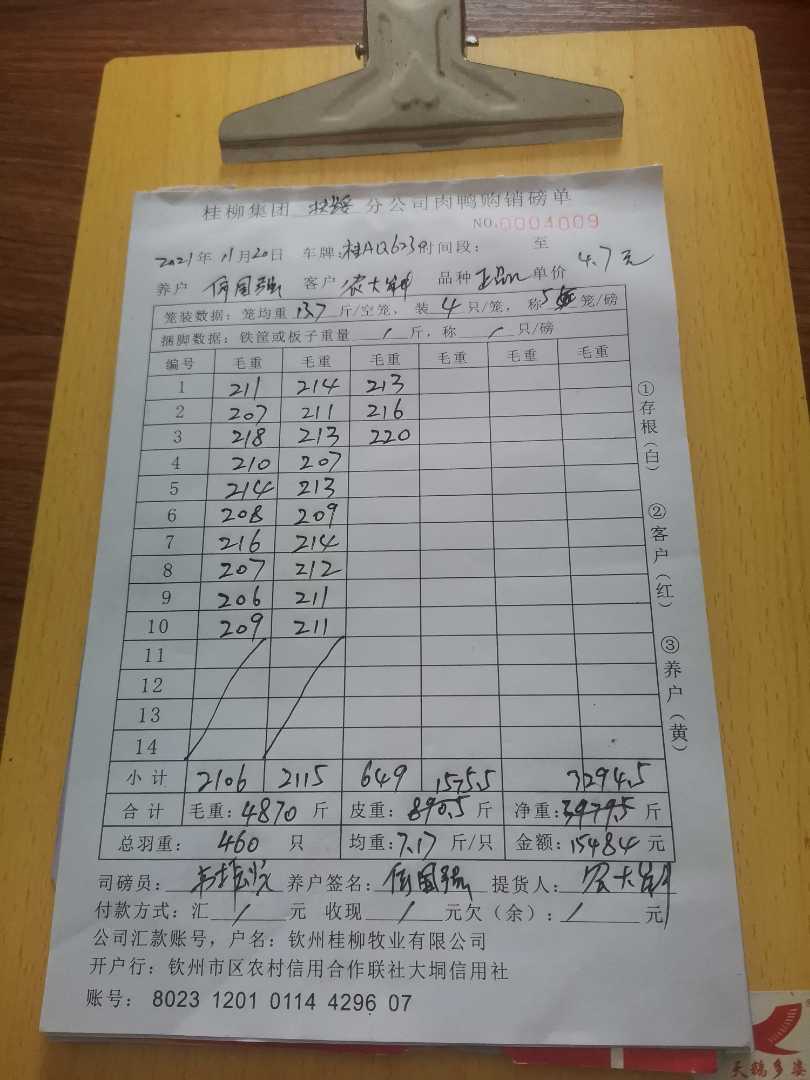 桂柳集团 扶绥 分公司肉鸭购销磅单
NO.0004009
2021年 11月20日 车牌:桂AQ623 时间段: 至
养户 客户 农大 品种 正品 单价 4.7元
笼装数据: 笼均重 13.7 斤/空笼, 装 4 只/笼, 称 5 笼/磅
捆脚数据: 铁筐或板子重量 / 斤, 称 / 只/磅
编号 毛重 毛重 毛重 毛重 毛重 毛重
1 211 214 213
2 207 211 216
3 218 213 220
4 210 207
5 214 213
6 208 209
7 216 214
8 207 212
9 206 211
10 209 211
11
12
13
14
小计 2106 2115 649 1575.5 3294.5
合计 毛重:4870 斤 皮重:890.5 斤 净重: 斤
总羽重: 460 只 均重:7.17 斤/只 金额:15484 元
司磅员: 养户签名: 提货人: 农大
付款方式: 汇 / 元 收现 / 元欠(余): / 元
公司汇款账号, 户名: 钦州桂柳牧业有限公司
开户行: 钦州市区农村信用合作联社大垌信用社
账号: 8023 1201 0114 4296 07
①存根(白)
②客户(红)
③养户(黄)
天鹅多姿